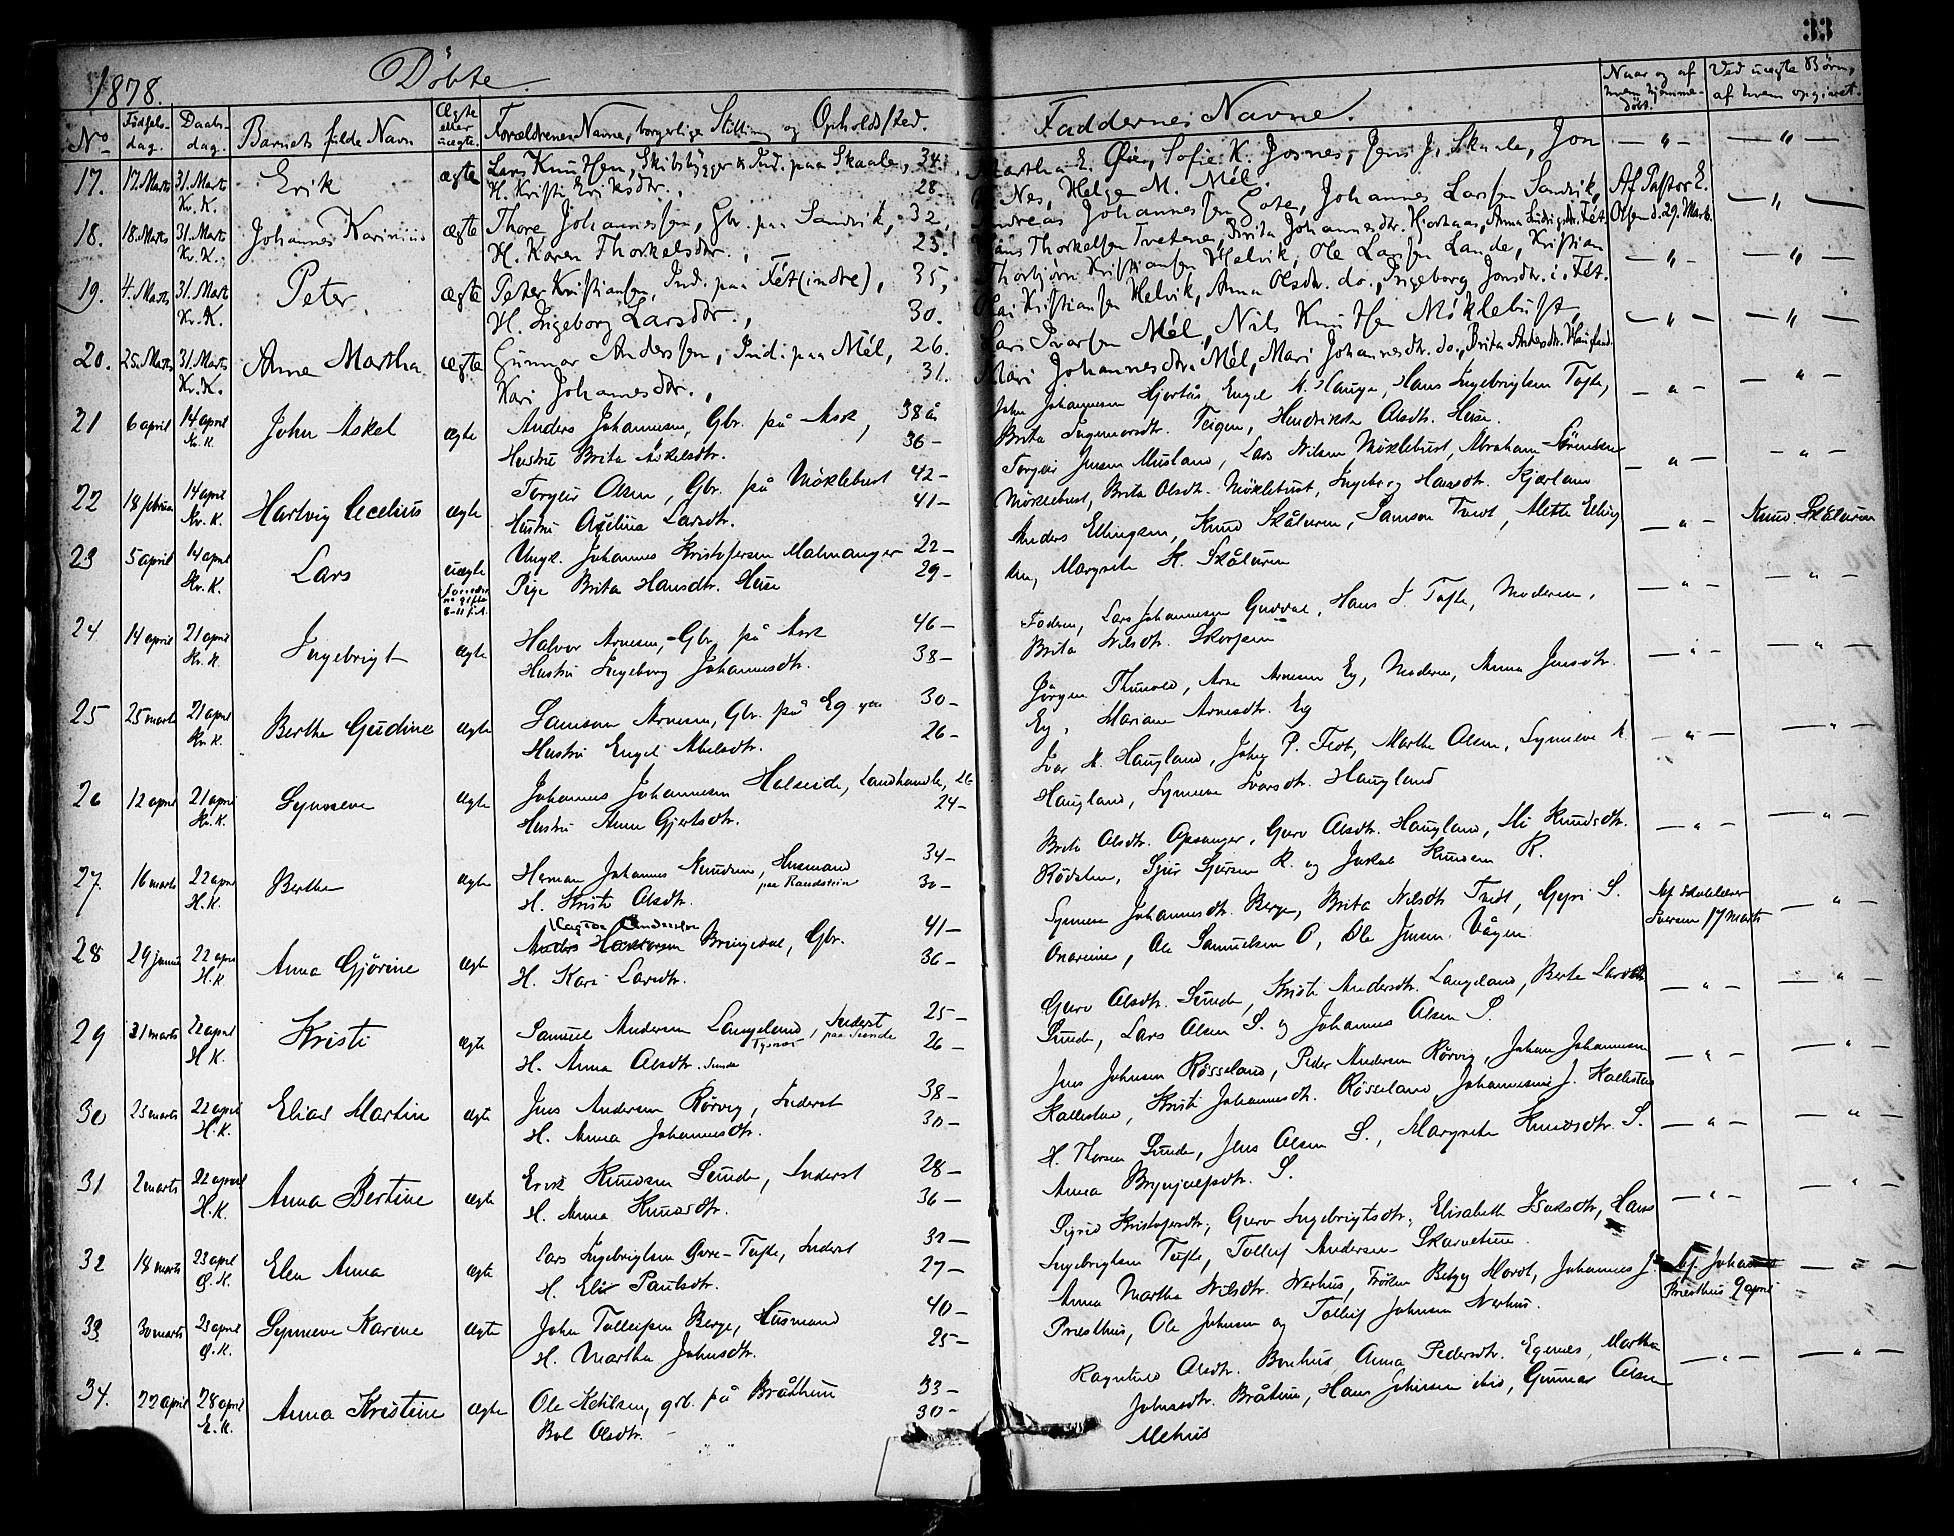 33
1878.
Döbte.
No
Fødsels-
dag.
Daabs-
dag.
Barnets fulde Navn
Ægte
eller
uægte.
Forældrenes Navne, borgerlige Stilling og Opholdssted.
Faddernes Navne.
Naar og af
hvem hjemme-
døbt.
Ved uægte Børn,
af hvem opgivet.
17. 17. Marts 31. Marts Kv. K. Erik ægte Lars Knutsen, Skibsbygger & Ind. paa Skaale, 34.
H. Kristi Eriksdtr., 28.
Martha E. Øier, Sofie K. Josnes, Jens J. Skaale, Jon
Nes, Helge M. Mél.
— " — — " —
18. 18. Marts 31. Marts Kv. K. Johannes Karinius ægte Thore Johannessen, Gbr. paa Sandvik, 32,
H. Karen Thorkelsdtr., 25.
Andreas Johannessen Gote, Johannes Larsen Sandvik,
Hans Thorkelsen Tvetene, Brita Johannesdtr.
Af Pastor E.
Olsen d. 29. Marts.
— " —
19. 4. Marts 31. Mart Kv. K. Peter. ægte Peter Kristiansen, Ind. paa Fét (indre), 35,
H. Ingeborg Larsdtr., 30.
Thorbjørn Kristiansen Helvik, Ole Larsen Lande, Kristian
Kristiansen Helvik, Anna Olsdtr. do., Ingeborg Jonsdtr. i. Fét.
— " — — " —
20. 25. Marts 31. Marts Kv. K. Anne Martha. ægte Gunnar Anderssen, Ind. paa Mél, 26.
Kari Johannesdtr., 31.
Ivarsen Mél, Nils Knutsen Möklebust,
Mari Johannesdtr. Mél, Mari Johannesdtr. do., Brita Andersdtr. Haugland.
— " — — " —
21 6 april 14 april Kv. K. John Askel ægte Anders Johannesen, Gbr. på Ask, 38 å
Hustru Brita Askelsdtr. 36 -
John Johannesen Hjortås, Engel M. Hauge, Hans Ingebrigtsen Tofte,
Brita Ingemarsdtr. Teigen, Hendrikka Olsdtr. Huse.
— " — — " —
22 18 februar 14 april Kv. K. Hartvig Cecelius ægte Torgeir Olsen, Gbr. på Möklebust 42 -
Hustru Larsdtr. 41 -
Torgeir Jensen Musland, Lars Nilsen Möklebust, Abraham Sörensen
Möklebust, Brita Olsdtr. Möklebust, Ingeborg Hansdtr. Kjærland
— " — — " —
23 5 april 14 april Kv. K. Lars uægte Ungk. Johannes Kristofersen Malmanger 22 -
Pige Brita Hansdtr. Huse 29 -
Anders Ellingsen, Knud Skåluren, Samson Tvedt, Mette Elling
sen, Margrete H. Skåluren
— " — Knud Skåluren
24 14 april 21 april Kv. K. Ingebrigt ægte Halvor Arnesen, Gbr på Ask 46 -
Hustru Ingeborg Johannesdtr. 38 -
Faderen, Lars Johannesen Guddal, Hans I. Tofte, Moderen,
Brita Nilsdtr. Skorpen
— " — — " —
25 25 marts 21 april Kv. K. Berthe Gudine ægte Samson Arnesen, Gbr. på Eg 30 -
Hustru Engel Abelsdtr. 26 -
Jörgen Thunold, Arne Arnesen Eg, Moderen, Anna Jensdtr.
Eg, Mariane Arnesdtr. Eg
— " — — " —
26 12 april 21 april Kv. K. Synneve ægte Johannes Johannesen Halseide, Landhandler, 26
Hustru Anna Gjertsdtr. 24 -
Ivar M. Haugland, Marthe Olsen, Synneve M.
Haugland, Synneve Ivarsdtr. Haugland
— " — — " —
27 16 marts 22 april H. K. Berthe ægte Herman Johannes Knudsen, Husmand 34 -
H. Kristi Olsdtr. 30 -
Brita Olsdtr. Opsanger, Guro Olsdtr. Haugland, Knudsdtr.
Rödsten, Sjur Sjursen R. og Jakob Knudsen R.
— " — — " —
28 29 januar 22 april H. K. Anna Gjörine ægte Bringedal, Gbr. 41 -
H. Kari Larsdtr. 36 -
Synneve Johannesdtr. Berge, Brita Nilsdtr Tvedt, S.
Onareim, Ole Samuelsen O, Ole Jensen Vågen
Af skolelærer
Iversen 17 marts
— " —
29 31 marts 22 april H. K. Kristi ægte Samuel Andersen Langeland, Tysnes, Inderst paa Sunde 25 -
H. Anna Olsdtr. Sunde 26 -
Guro Olsdtr. Sunde, Kristi Andersdtr. Langeland, Berte Larsdtr
Sunde, Lars Olsen S. og Johannes Olsen S.
— " — — " —
30 23 marts 22 april H. K. Elias Martin ægte Jens Andersen Rörvig, Inderst 38 -
H. Anna Johannesdtr. 30 -
Jens Johnsen Rösseland, Peder Andersen Rörvig, Johan Johannesen
Kallestad, Kristi Johannesdtr. Rösseland, J. Kallestad
— " — — " —
31 2 marts 22 april H. K. Anna Bertine ægte Erik Knudsen Sunde, Inderst 28 -
H. Anna Knudsdtr. 36 -
H. Thorsen Sunde, Jens Olsen S., Margrete Knudsdtr. S.
Anna Brynjulfsdtr. S.
— " — — " —
32 18 marts 23 april Ø. K. Elen Anna ægte Lars Ingebrigtsen Övre-Tofte, Inderst 32 -
H. Eli Paulsdtr. 27 -
Sigrid Kristofersdtr, Guro Ingebrigtsdtr, Elisabeth Isaksdtr, Hans
Ingebrigtsen Tofte, Tollef Andersen Skarvetun.
— " — — " —
33 30 marts 23 april Ø. K. Synneve Karine ægte John Tollefsen Berge, Husmand 40 -
H. Martha Johnsdtr. 25 -
Anna Martha Nilsdtr. Nerhus, Fröken Betzy Hordt, Johannes J.
Præsthus, Ole Johnsen og Tollef Johnsen Nerhus.
Af Johannes
Præsthus 9 april
— " —
34. 22 april 28 april E. K. Anna Kristine ægte Ole Ketilsen, grb. på Bråthun 33 -
Bol Olsdtr. 30 -
Ragnilda Olsdtr. Bonhus, Anna Pedersdtr. Egenes, Martha
Johnsdtr. Bråtun, Hans Johnsen ibid, Gunnar Olsen
Mehus
— " — — " —